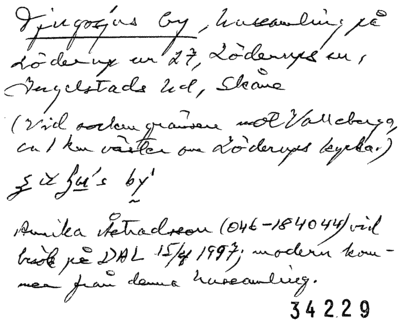 Djingosjös by, hussamling på
Löderup nr 27, Löderups sn,
Ingelstads hd, Skåne
(Vid sockengränsen mot Valleberga,
ca 1 km väster om Löderups kyrka.)
by'
Annika Åstradsson (046-184044) vid
besök på DAL 15/4 1997; modern kom-
mer från denna hussamling.
34229